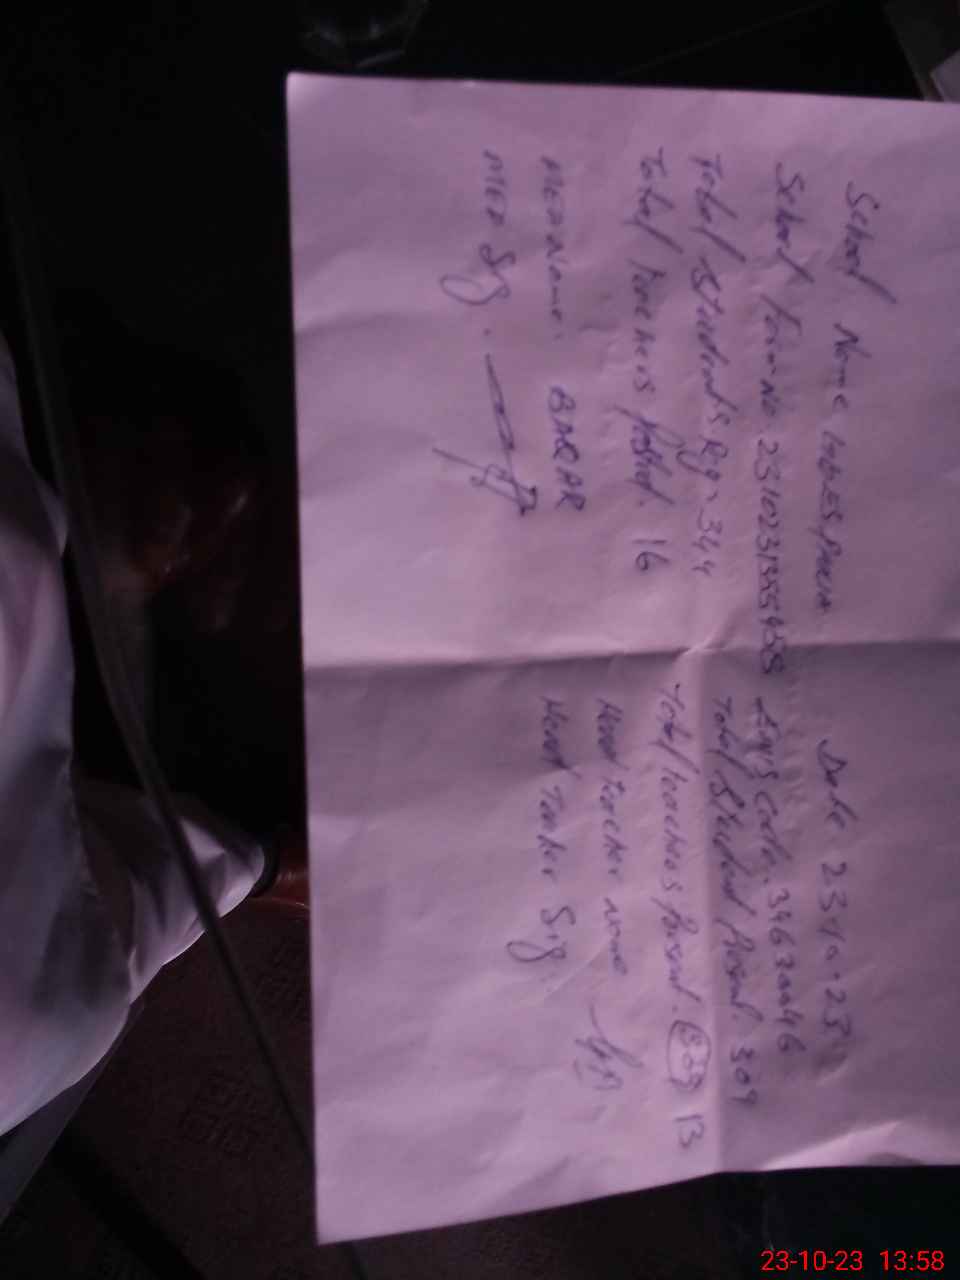 School Name Date 23-10-23
School Form No. 2310231355458 EMIS Code. 34630046
Total Students Reg = 344 Total Student Present. 309
Total teachers Posted. 16 Total teachers Present. 13
MEA Name. BABAR Head teacher name
MEA Sig. Head Teacher Sig.
23-10-23 13:58